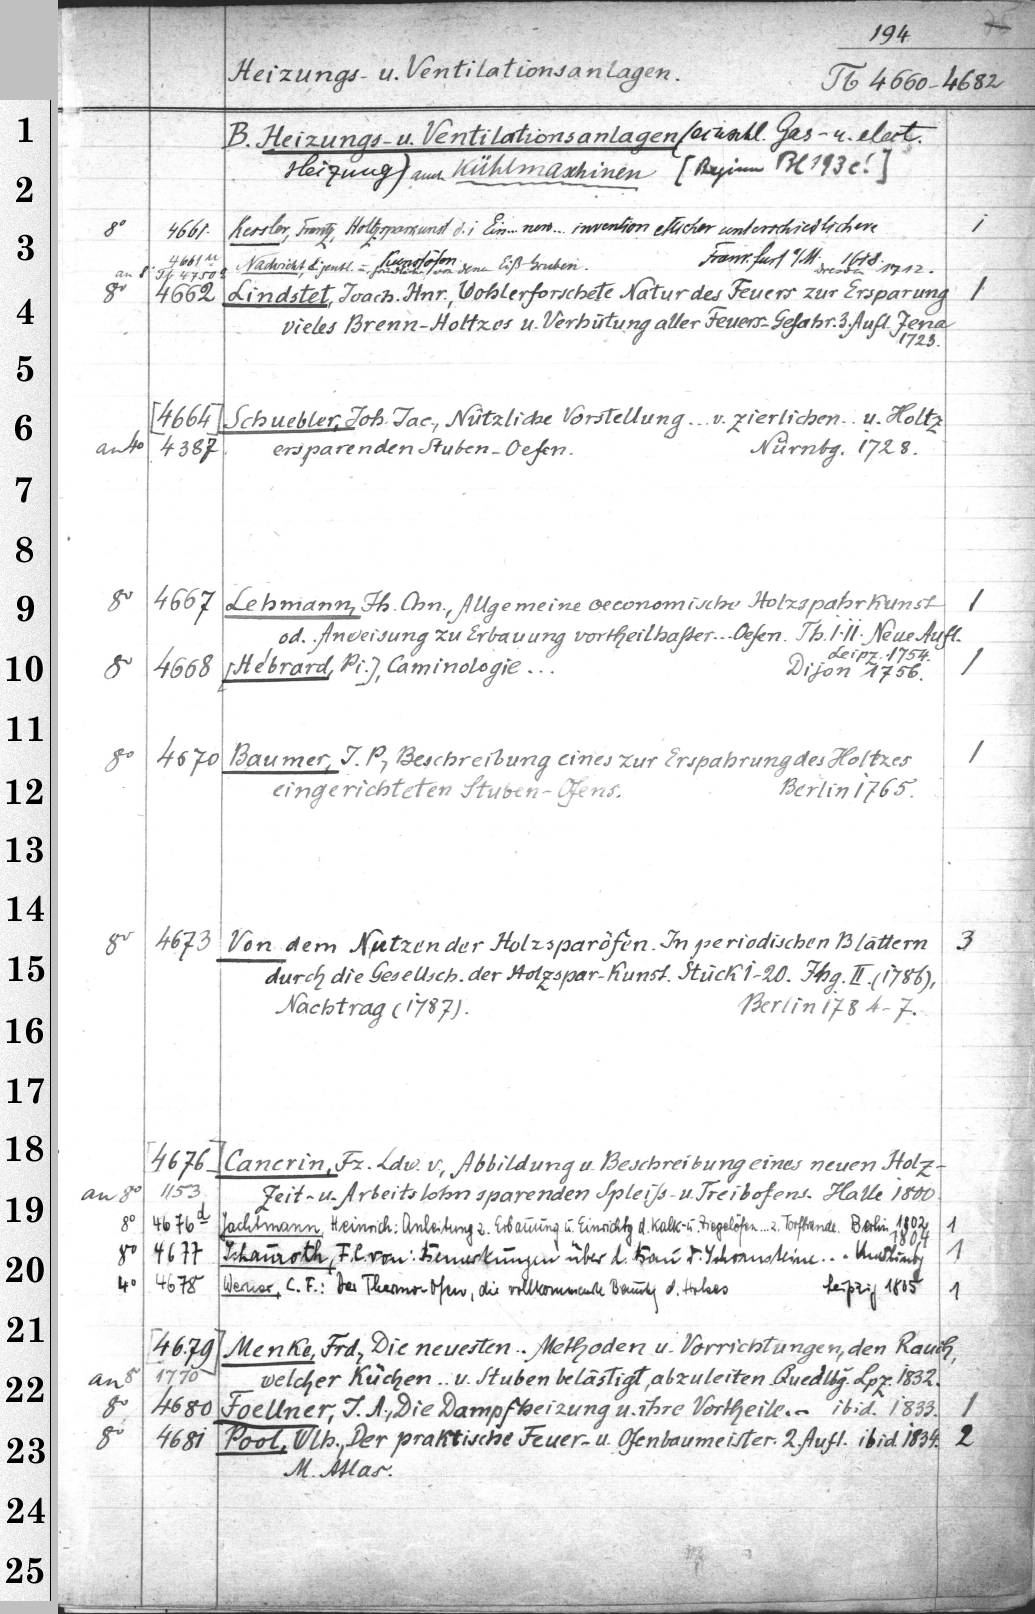 194
Heizungs- u. Ventilationsanlagen. Tb 4660-4682
1
B. Heizungs- u. Ventilationsanlagen (einschl. Gas- u. elect.
2
Heizung) auch Kühlmaschinen [Beginn Bl 193c!]
8° 4661. Kessler, Frantz, Holtzsparkunst d. i Ein... new... invention etlicher unterschiedlicher 1
3
Kunstöfen Frankfurt a/M. 1618.
4661 a Nachricht, von denen Eiß-Gruben. Dresden 1712.
an 8° 4750
8° 4662 Lindstet, Joach. Hnr., Wohlerforschete Natur des Feuers zur Ersparung 1
4
vieles Brenn-Holtzes u. Verhütung aller Feuers-Gefahr. 3. Aufl. Jena
1723.
5
6
[4664] Schuebler, Joh. Jac., Nützliche Vorstellung... v. zierlichen.. u. Holtz
an 4° 4387 ersparenden Stuben-Oefen. Nürnbg. 1728.
7
8
9
8° 4667 Lehmann, Jh. Chn., Allgemeine oeconomische Holzspahrkunst 1
od. Anweisung zu Erbauung vortheilhafter... Oefen. Th. I·II. Neue Aufl.
Leipz. 1754.
10
8° 4668 [Hébrard, Pi.], Caminologie... Dijon 1756. 1
11
8° 4670 Baumer, J. P., Beschreibung eines zur Erspahrung des Holtzes 1
12
eingerichteten Stuben-Ofens. Berlin 1765.
13
14
8° 4673 Von dem Nutzen der Holzsparöfen. In periodischen Blättern 3
15
durch die Gesellsch. der Holzspar-Kunst. Stück 1-20. Jhg. II. (1786),
Nachtrag (1787). Berlin 1784-7.
16
17
18
[4676] Cancrin, Fz. Ldw. v., Abbildung u. Beschreibung eines neuen Holz-
an 8° 1153 Zeit- u. Arbeitslohn sparenden Spleiß- u. Treibofens. Halle 1800.
19
8° 4676 d Jachtmann, Heinrich: Anleitung z. Erbauung u. Einrichtg d. Kalk- u. Ziegelöfen... z. Torfbrande. Berlin 1802 1
1804
8° 4677 Schauroth, F. C. von: Bemerkungen über d. Bau d. Schornsteine... 1
20
4° 4678 Werner, C. F.: Der Thermo-Ofen, die vollkommenste Benutzg d. Holzes Leipzig 1805 1
21
[4679] Menke, Frd., Die neuesten.. Methoden u. Vorrichtungen, den Rauch,
22
an 8° 1770 welcher Küchen.. u. Stuben belästigt, abzuleiten. Quedlbg. Lpz. 1832.
8° 4680 Foellner, J. A., Die Dampfheizung u. ihre Vortheile.- ibid. 1833. 1
23
8° 4681 Pool, Wlh., Der praktische Feuer- u. Ofenbaumeister. 2. Aufl. ibid. 1834. 2
M. Atlas.
24
25